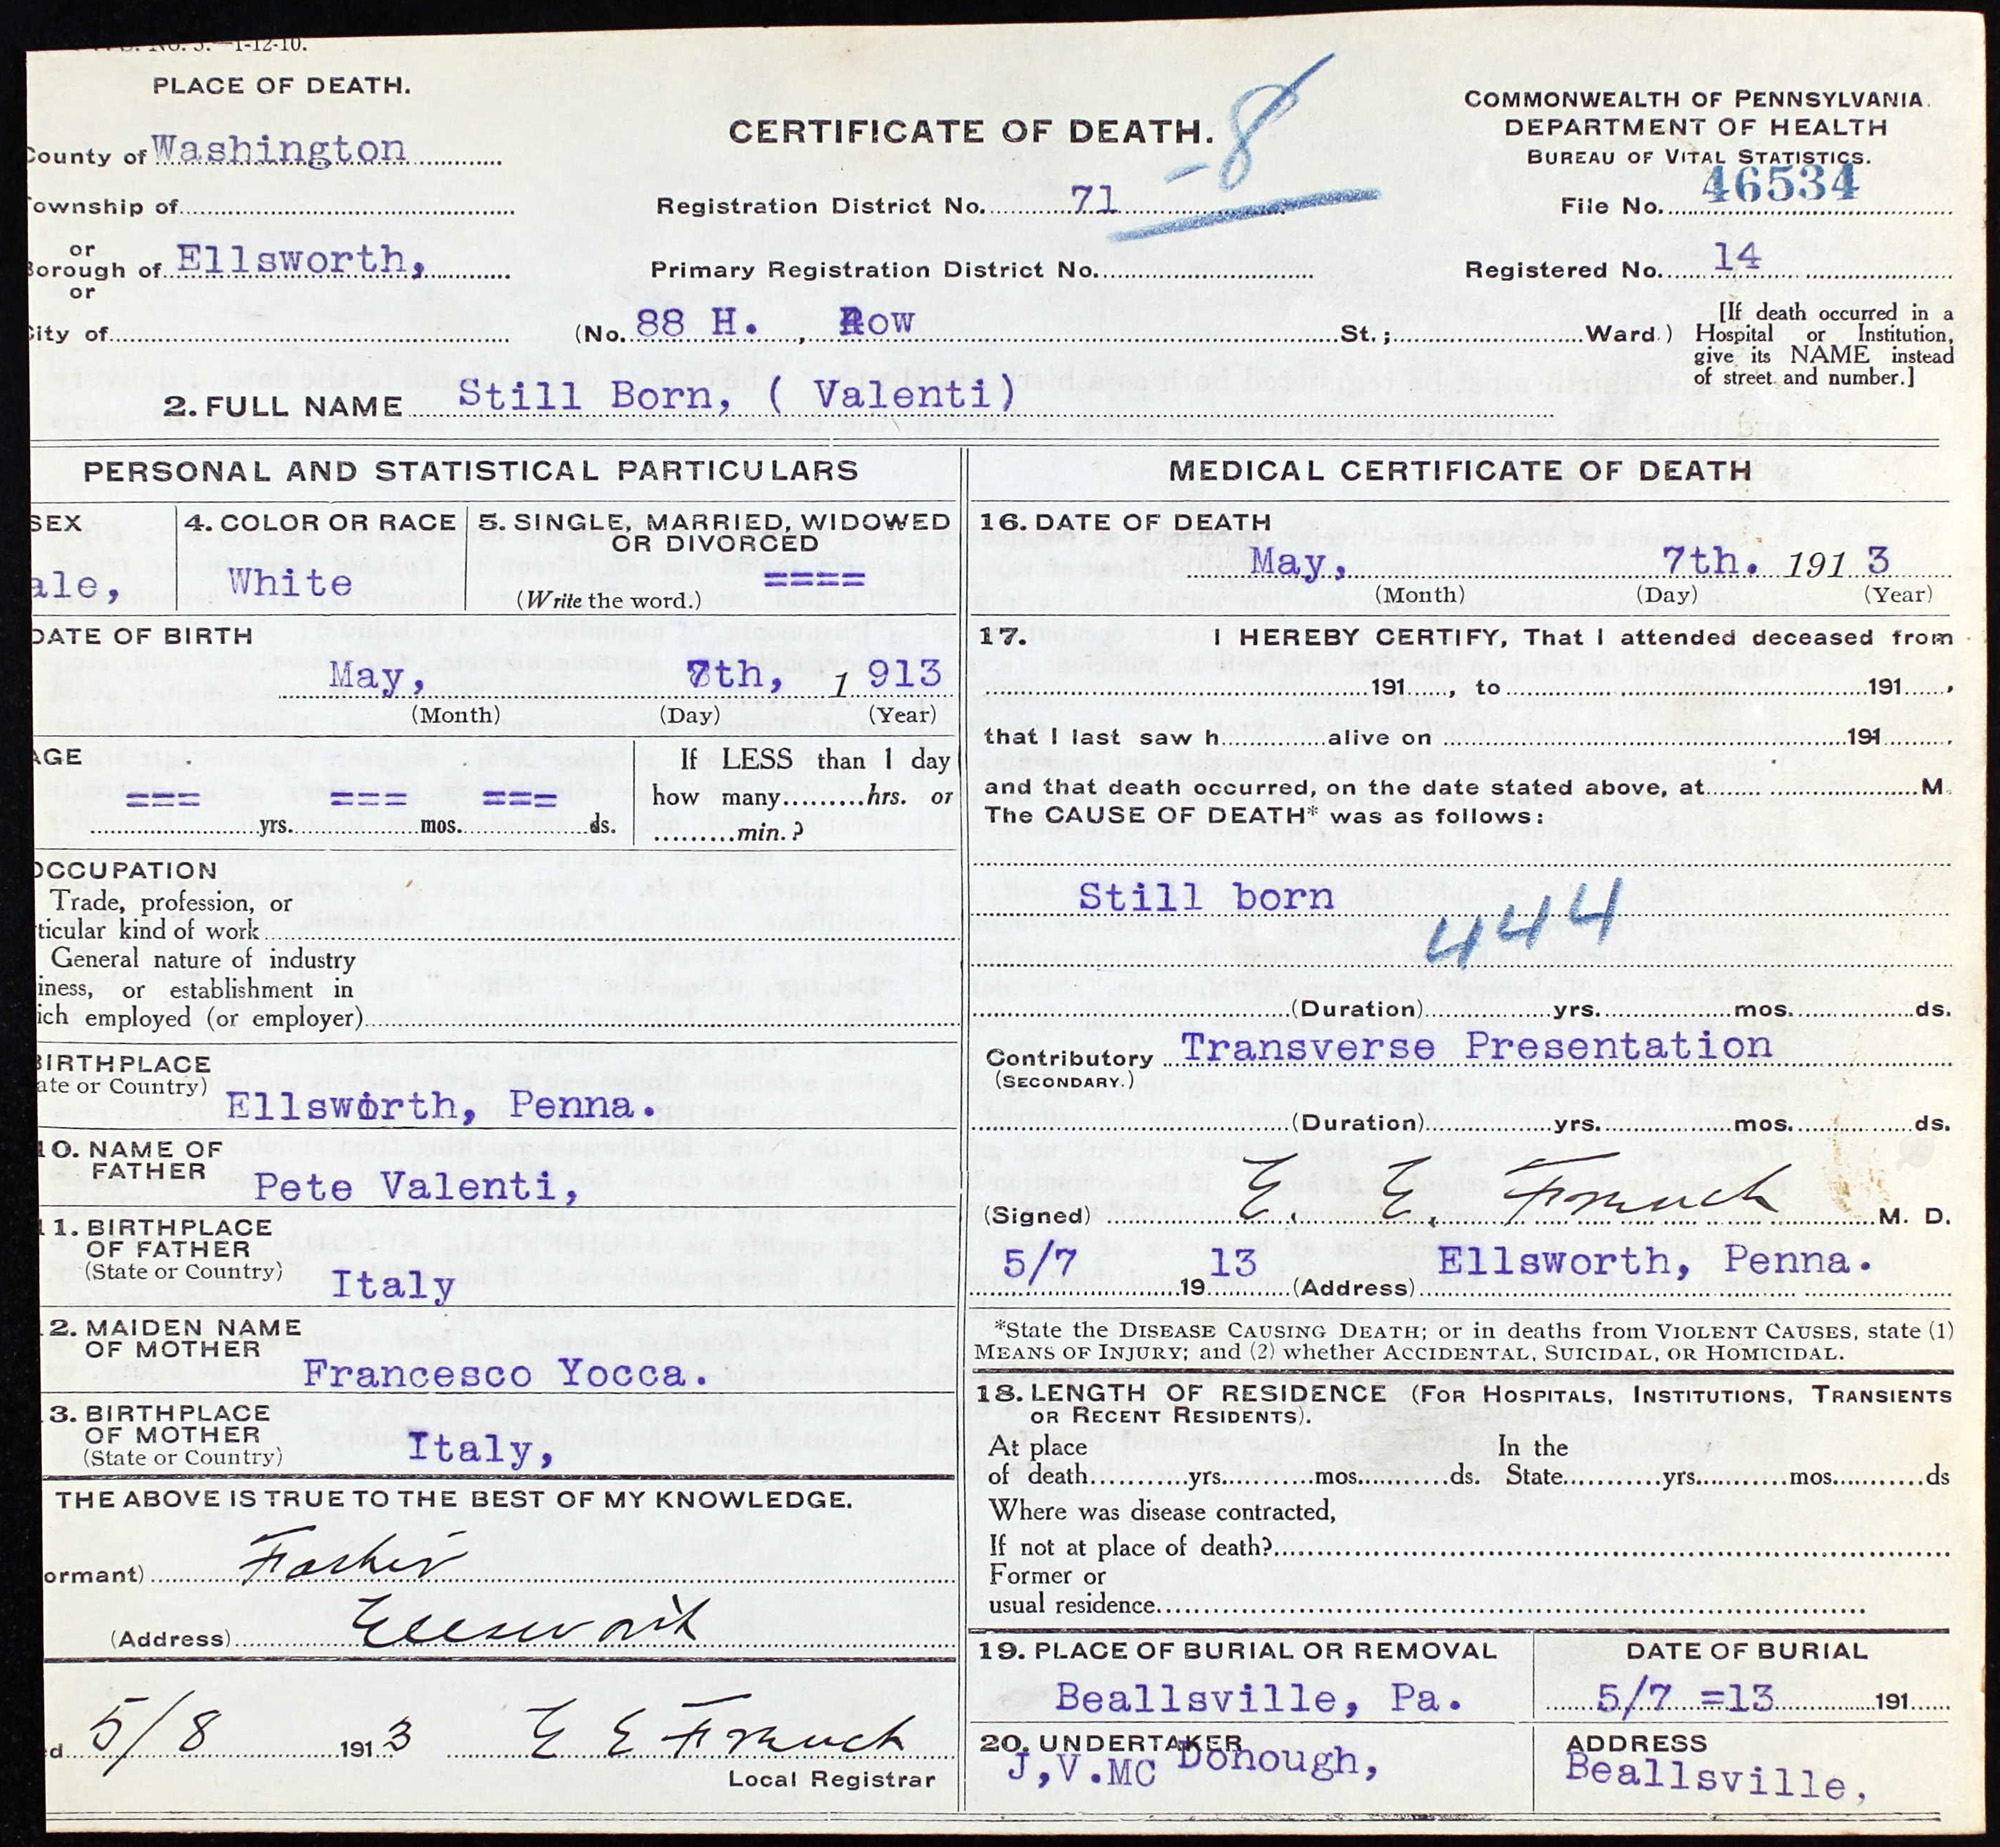 No. 5.—1-12-10.
PLACE OF DEATH.
County of Washington
Township of
or
Borough of Ellsworth,
or
City of
CERTIFICATE OF DEATH.
-8
Registration District No. 71
Primary Registration District No.
(No. 88 H. Row St.; Ward.)
COMMONWEALTH OF PENNSYLVANIA.
DEPARTMENT OF HEALTH
BUREAU OF VITAL STATISTICS.
File No. 46534
Registered No. 14
[If death occurred in a
Hospital or Institution,
give its NAME instead
of street and number.]
2. FULL NAME Still Born, ( Valenti)
PERSONAL AND STATISTICAL PARTICULARS
SEX
ale,
4. COLOR OR RACE
White
5. SINGLE, MARRIED, WIDOWED
OR DIVORCED
====
(Write the word.)
DATE OF BIRTH
May, 7th, 1 913
(Month) (Day) (Year)
AGE
=== === ===
yrs. mos. ds.
If LESS than 1 day
how many hrs. or
min.?
OCCUPATION
Trade, profession, or
ticular kind of work
General nature of industry
iness, or establishment in
ich employed (or employer)
BIRTHPLACE
ate or Country)
Ellsworth, Penna.
10. NAME OF
FATHER
Pete Valenti,
11. BIRTHPLACE
OF FATHER
(State or Country)
Italy
2. MAIDEN NAME
OF MOTHER
Francesco Yocca.
3. BIRTHPLACE
OF MOTHER
(State or Country)
Italy,
THE ABOVE IS TRUE TO THE BEST OF MY KNOWLEDGE.
ormant) Father
(Address) Ellsworth
d 5/8 191 3 E E
Local Registrar
MEDICAL CERTIFICATE OF DEATH
16. DATE OF DEATH
May, 7th. 191 3
(Month) (Day) (Year)
17. I HEREBY CERTIFY, That I attended deceased from
191 , to 191 ,
that I last saw h alive on 191
and that death occurred, on the date stated above, at M.
The CAUSE OF DEATH* was as follows:
Still born
444
(Duration) yrs. mos. ds.
Contributory Transverse Presentation
(SECONDARY.)
(Duration) yrs. mos. ds.
(Signed) E E. M. D.
5/7 19 13 (Address) Ellsworth, Penna.
*State the DISEASE CAUSING DEATH; or in deaths from VIOLENT CAUSES, state (1)
MEANS OF INJURY; and (2) whether ACCIDENTAL, SUICIDAL, OR HOMICIDAL.
18. LENGTH OF RESIDENCE (FOR HOSPITALS, INSTITUTIONS, TRANSIENTS
OR RECENT RESIDENTS).
At place In the
of death yrs. mos. ds. State yrs. mos. ds
Where was disease contracted,
If not at place of death?
Former or
usual residence
19. PLACE OF BURIAL OR REMOVAL
Beallsville, Pa.
DATE OF BURIAL
5/7 =13 191
20. UNDERTAKER
J,V.MC Donough,
ADDRESS
Beallsville,